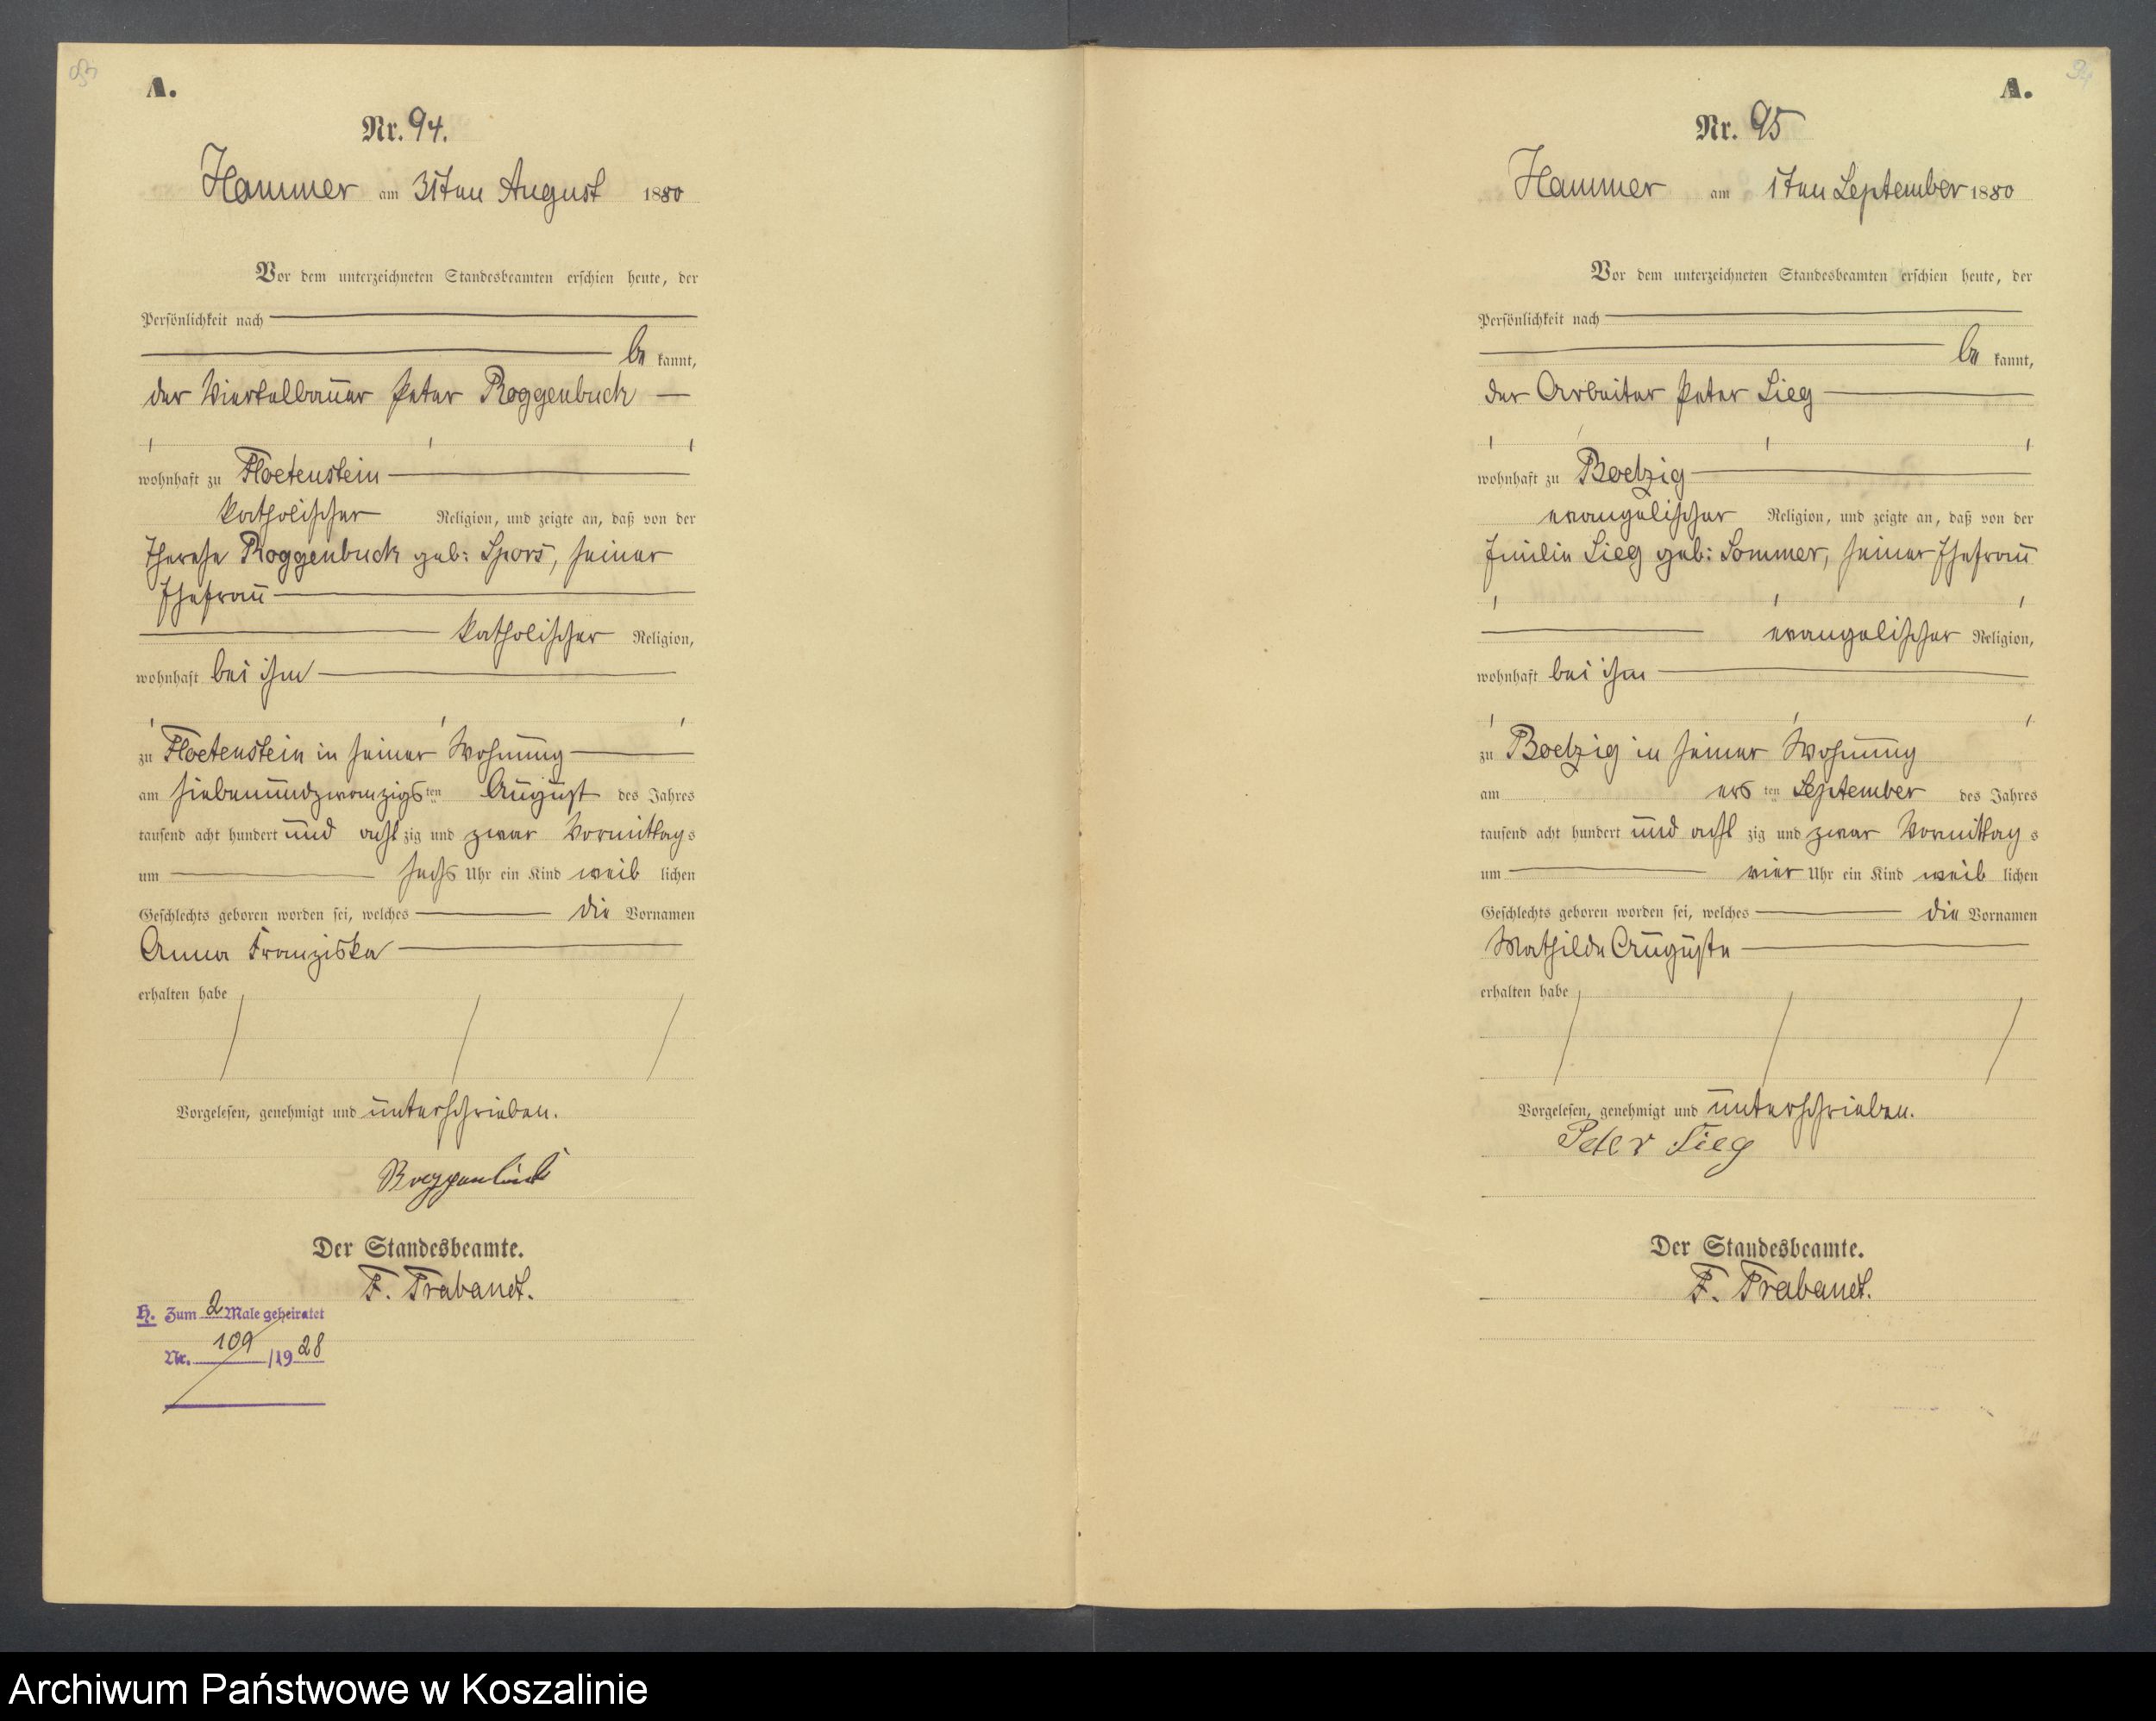 A.
Nr. 94.
Hammer am 31ten August 1880
Vor dem unterzeichneten Standesbeamten erschien heute, der
Persönlichkeit nach
be kannt,
der Viertelbauer Peter Roggenbuck
wohnhaft zu Floetenstein
katholischer Religion, und zeigte an, daß von der
Therese Roggenbuck geb: Spors, seiner
Ehefrau
katholischer Religion,
wohnhaft bei ihm
zu Floetenstein in seiner Wohnung
am siebenundzwanzigs ten August des Jahres
tausend acht hundert und acht zig und zwar Vormittag s
um sechs Uhr ein Kind weib lichen
Geschlechts geboren worden sei, welches die Vornamen
Anna Franziska
erhalten habe
Vorgelesen, genehmigt und unterschrieben.
Roggenbuck
Der Standesbeamte.
F. Trabandt.
H. Zum 2 Male geheiratet
Nr. 109 /19 28
A.
Nr. 95
Hammer am 1ten September 1880
Vor dem unterzeichneten Standesbeamten erschien heute, der
Persönlichkeit nach
be kannt,
der Arbeiter Peter Sieg
wohnhaft zu Boelzig
evangelischer Religion, und zeigte an, daß von der
Emilie Sieg geb: Sommer, seiner Ehefrau
evangelischer Religion,
wohnhaft bei ihm
zu Boelzig in seiner Wohnung
am ers ten September des Jahres
tausend acht hundert und acht zig und zwar Vormittag s
um vier Uhr ein Kind weib lichen
Geschlechts geboren worden sei, welches die Vornamen
Mathilde Auguste
erhalten habe
Vorgelesen, genehmigt und unterschrieben.
Peter Sieg
Der Standesbeamte.
F. Trabandt.
Archiwum Państwowe w Koszalinie